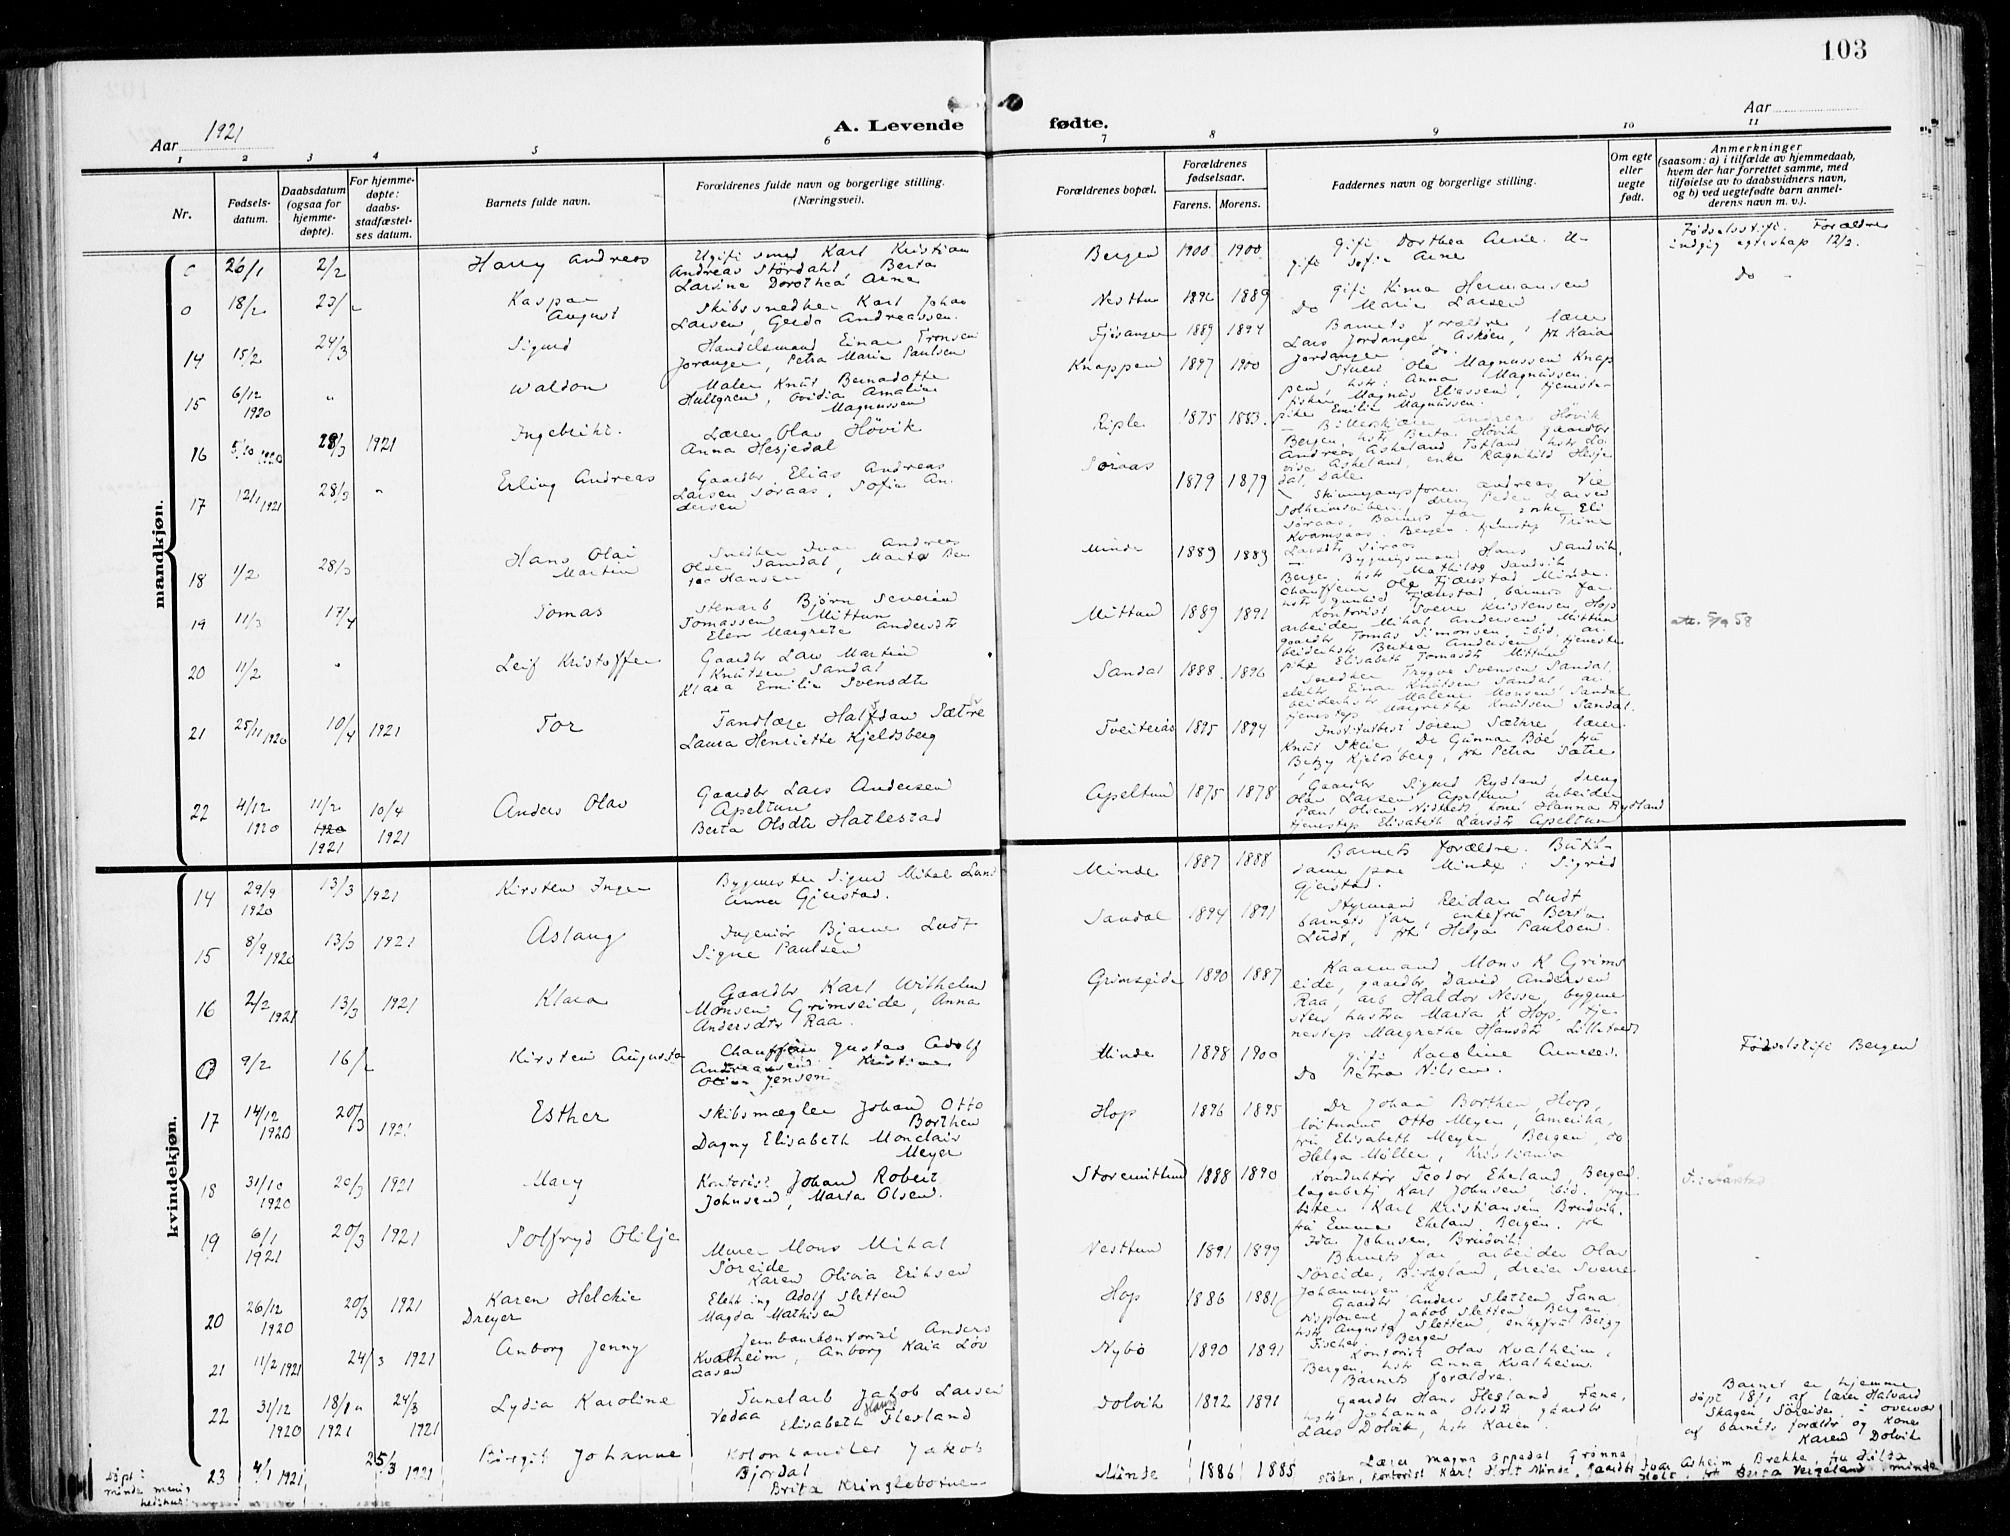 103
Aar 1921
A. Levende fødte.
Aar
1 2 3 4 5 6 7 8 9 10 11
Nr.
Fødsels-
datum.
Daabsdatum
(ogsaa for
hjemme-
døpte).
For hjemme-
døpte:
daabs-
stadfæstel-
ses datum.
Barnets fulde navn.
Forældrenes fulde navn og borgerlige stilling.
(Næringsvei).
Forældrenes bopæl.
Forældrenes
fødselsaar.
Farens. Morens.
Faddernes navn og borgerlige stilling.
Om egte
eller
uegte
født.
Anmerkninger
(saasom: a) i tilfælde av hjemmedaab,
hvem der har forrettet samme, med
tilføielse av to daabsvidners navn,
og b) ved uegtefødte barn anmel-
derens navn m. v.).
mandkjøn.
26/1 2/2 Harry Andreas
Ugift smed Karl Kristian
Andreas Stördahl, Berta
Larsine Dorothea Arne
Bergen 1900 1900
Gift Dorthea Arne. U-
gift Sofie Arne
Fødselsstift. Forældre
indgig egteskap 12/2.
0 18/2 23/2 Kaspar
August
Skibssnedker Karl Johan
Larsen, Gerda Andreassen.
Nesttun 1892 1889
Gift Kima Hermansen
Do Marie Larsen
Do
14 15/2 24/3 Sigurd
Handelsmand Einar Tronsen
Joranger, Petra Marie Paulsen
Fjösanger 1889 1894
Barnets forældre, lærer
Lars Jordanger, Askøen, frk Kaia
Jordanger do.
15 6/12 1920 " Waldon
Maler Knut Bernadotte
Hultgren, Ovidia Amalie
Magnussen
Knappen 1897 1900
Stuert Ole Magnussen Knap
pen, hstr: Anna Magnussen.
fisker Magnus Eliassen, tjeneste-
pike Emilie Magnussen.
16 5/10 1920 28/3 1921 Ingebrikt.
Lærer Olav Hövik
Anna Hesjedal
Riple 1875 1883.
Andrea Hövik
Bergen, hstr Berta Hövik gaardbr
Andreas Askeland Totland hstr Lo
vise Askeland, enke Ragnhild Hesje
dal, Dale
17 12/1 1921 28/3 " Erling Andreas
Gaardbr. Elias Andreas
Larsen Söraas, Sofie An-
dersen
Söraas 1879 1879
Andreas Vie
Solheimsviken, dreng Peder Larsen
Söraas, Barnets far, enke Eli
Kvamsaas, Bergen. tjenestep Trine
Larsdtr Söraas
18 1/2 28/3 Hans Olai
Martin
Snedker Ivar Andreas
Olsen Samdal, Marta Ber
Hansen
Minde 1889 1883
Bygningsmand Hans Sandvik,
Bergen, hstr Mathilde Sandvik
Chauffeur Ole Fjærestad Minde.
19 11/3 17/4 Tomas
Stenarb Bjørn Severin
Tomassen Mittun
Elen Margrete Andersdtr
Mittun 1889 1891
Kontorist Sverre Kristensen Hop
arbeider Mikal Andersen, Mittun
gaardbr Tomas Simonsen ibid, ar-
beiderhstr Bertha Andersen, tjeneste
pike Elisabeth Tomasdtr Mittun
20 11/2 " Leif Kristoffer
Gaardbr Lars Martin
Knutsen Sandal
Klara Emilie Svensdtr
Sandal 1888. 1896
Snedker Trygve Svensen Sandal,
elektr Einar Knutsen Sandal ar
beiderhstr Malene Monsen Sandal
tjenestep Margrethe Knutsen Sandal.
21 25/11 1920 10/4 1921 Tor
Tandlæge Halfdan Sætre
Laura Henriette Kjeldsberg
Tveiterås 1895 1894
Institutbest Sören Sæthre, lærer.
Knut Skeie, Dr Gunnar Böe, fru
Betzy Kjeldsberg, frk Petra Sætre
22 4/12 1920 11/2 1920 1921 10/4 1921 Anders Olav
Gaardbr Lars Andersen
Apeltun
Berta Olsdtr Hatlestad
Apeltun 1875 1878
Gaardbr Sigurd Rydland, dreng
Olav Larsen Apeltun arbeider
Paul Olsen Midttvedt, kone Hanna Rydland
tjenestep Elisabeth Larsdtr Apeltun
kvindekjøn.
14 29/9 1920 13/3 1921 Kirsten Inger
Bygmester Sigurd Mikal Lund
Anna Gjerstad.
Minde 1887 1888
Barnets forældre. Butik-
dame paa Minde: Sigrid
Gjerstad.
15 8/9 1920 13/3 1921 Aslaug
Ingeniör Bjarne Ludt
Signe Paulsen
Sandal 1894 1891
Styrmand Reidar Ludt
barnets far, enkefru Berta
Ludt, frk Helga Paulsen.
16 2/2 1921 13/3 1921 Klara
Gaardbr Karl Wilhelm
Monsen Grimseide, Anna
Andersdtr Raa.
Grimseide 1890 1887
Kaarmand Mons K Grims
eide, gaardbr David Andersen
Raa, arb Haldor Nesse, bygme
sters hustru Marta K Hop, tje-
nestep Margrethe Hansdtr Lilletvedt
9/2 16/2 Kirsten Augusta
Chauffør Gustav Adolf
Andreassen Kristine
Jensen
Minde 1898 1900
Gift Karoline Arnesen.
Do Petra Nilsen.
Fødselstift Bergen
17 14/12 1920 20/3 1921 Esther
Skibsmægler Johan Otto
Borthen
Dagny Elisabeth Monclair
Meyer
Hop 1896 1895
Dr Johan Borthen, Hop,
löitnant Otto Meyer, Amerika,
fru Elisabeth Meyer, Bergen, do
Helga Möller, Kristiania
18 31/10 1920 20/3 1921 Mary
Kontorist Johan Robert
Johnsen, Marta Olsen.
Storemittun 1888 1890
Konduktör Teodor Ekeland, Bergen.
lagerbetj Karl Johnsen, ibid.
Karl Kristiansen Bruvik.
fru Emma Ekeland Bergen. frk
Ida Johnsen, Bruvik.
19 6/1 1921 20/3 1921 Solfryd Olilje
Murer Mons Mikal
Söreide
Karen Olivia Eriksen
Nesttun 1891 1899
Barnets far arbeider Olav
Söreide, Birkeland, dreier Sverre
Johannesen
20 26/12 1920 20/3 1921 Karen Helchie
Dreyer
Elektr ing Adolf Sletten
Magda Mathisen
Hop 1886 1881
Gaardbr Anders Sletten Fana
disponent Jakob Sletten, Bergen,
hstr Augusta Sletten, enkefru Betzy
Fischer, Bergen
21 11/2 1921 24/3 1921 Anborg Jenny
Jernbanekontorist Anders
Kvalheim, Anborg Kaia Löv
aasen
Nybö 1890 1891
Kontorist Olav Kvalheim,
Bergen, hstr Anna Kvalheim.
Barnets forældre.
22 31/12 1920 18/1 1921 24/3 1921 Lydia Karoline
Tunelarb Jakob Larsen
Vedaa
Elisabeth Hansdtr Flesland
Dolvik 1892 1891
Gaardbr Hans Flesland Fana,
hstr Johanna Olsdtr gaardbr
Lars Dolvik, hstr Karen.
Barnet er hjemme
døpt 18/1 af lærer Halvard
Skagen Söreide i overvær
af barnets forældr og Kone
Karen Dolvik
23 4/1 1921 25/3 1921 Birgit Johanne
Kolonhandler Jakob
Bjordal
Brita Kringlebotn
Minde 1886 1885
Lærer Magna Oppedal Grønne
stölen, kontorist Karl Holt Minde, gaardbr Ivar Askeim, Brekke, fru Hilda
Holt, frk Berta Vergeland, Minde
döpt i
Minde menig
hedshus.